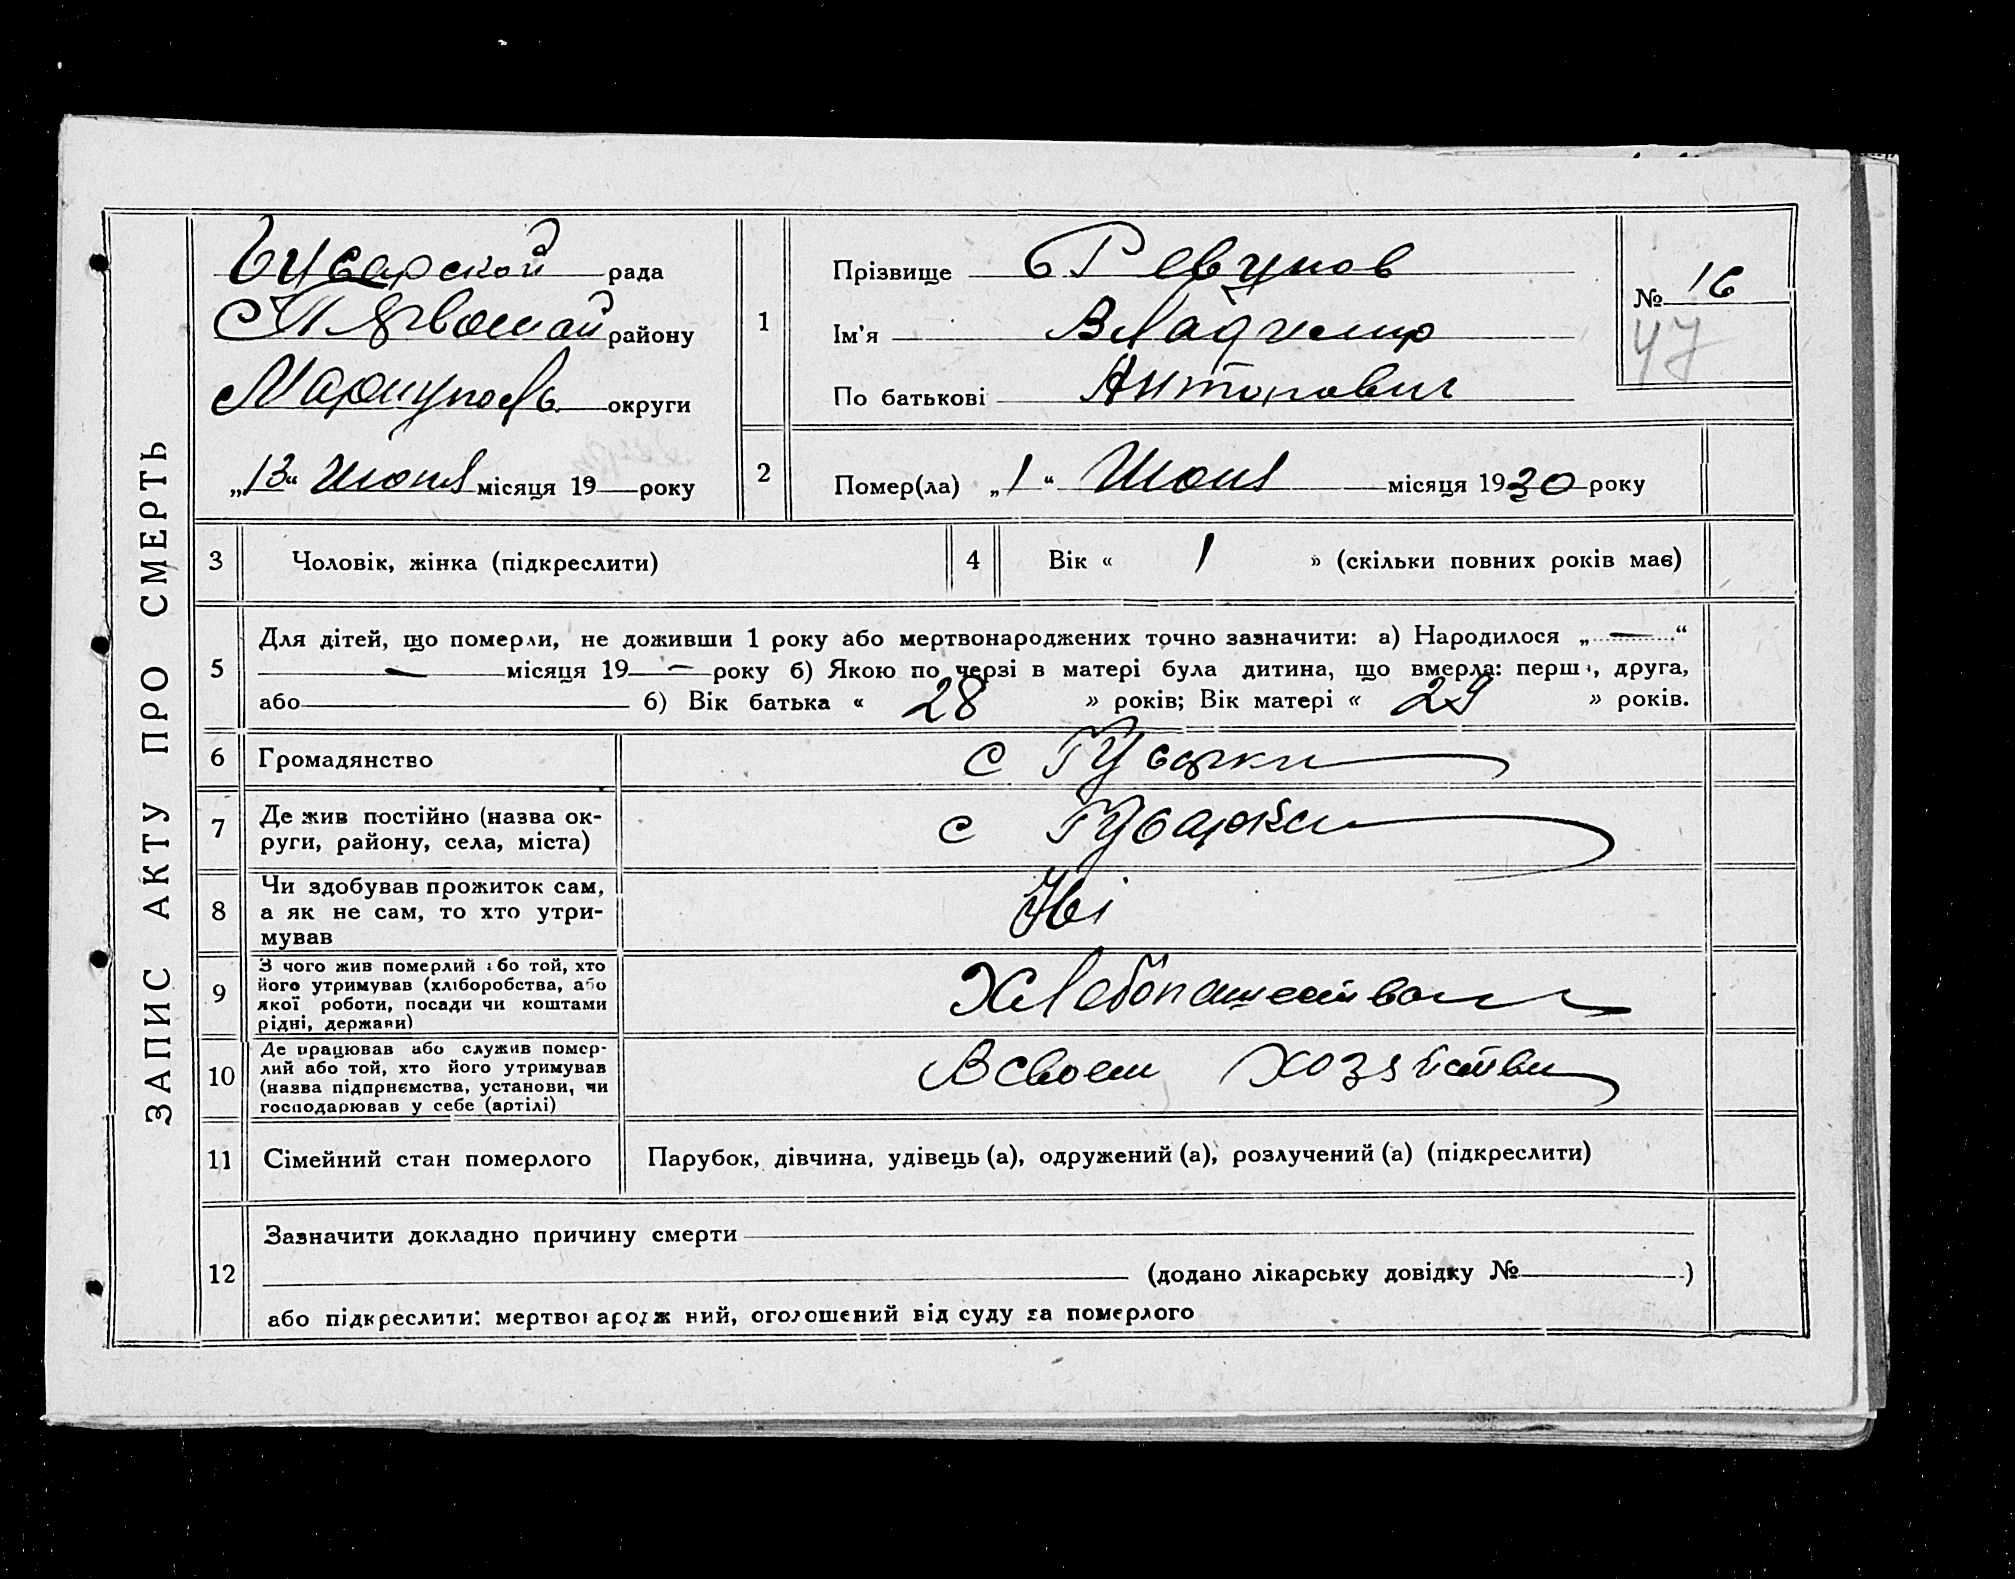 ЗАПИС АКТУ ПРО СМЕРТЬ
рада
району
Мариуполь округи
„13“ Июня місяця 19 року
1
Прізвище Ревунов
Ім'я Владимир
По батькові Антонович
№ 16
47
2
Помер(ла) „1“ Июня місяця 1930 року
3 Чоловік, жінка (підкреслити)
4 Вік « 1 » (скільки повних років має)
5
Для дітей, що померли, не доживши 1 року або мертвонароджених точно зазначити: а) Народилося „ — “
— місяця 19 — року б) Якою по черзі в матері була дитина, що вмерла: перш , друга,
або б) Вік батька « 28 » років; Вік матері « 29 » років.
6 Громадянство с
7 Де жив постійно (назва ок-
руги, району, села, міста)
с Гусарки
8 Чи здобував прожиток сам,
а як не сам, то хто утри-
мував
Ні
9 З чого жив померлий або той, хто
його утримував (хліборобства, або
якої роботи, посади чи коштами
рідні, держави)
Хлебопашеством
10 Де працював або служив помер-
лий або той, хто його утримував
(назва підприємства, установи, чи
господарював у себе (артілі)
В своем хозяйстви
11 Сімейний стан померлого
Парубок, дівчина, удівець (а), одружений (а), розлучений (а) (підкреслити)
12
Зазначити докладно причину смерти
(додано лікарську довідку № )
або підкреслити: мертвонародж ний, оголошений від суду за померлого